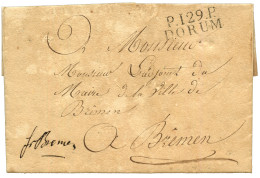 P.129.P.
DORUM
Monsieur
Monsieur L'adjoint du
Maire de la Ville de
Bremen
fr Bremen
à Bremen